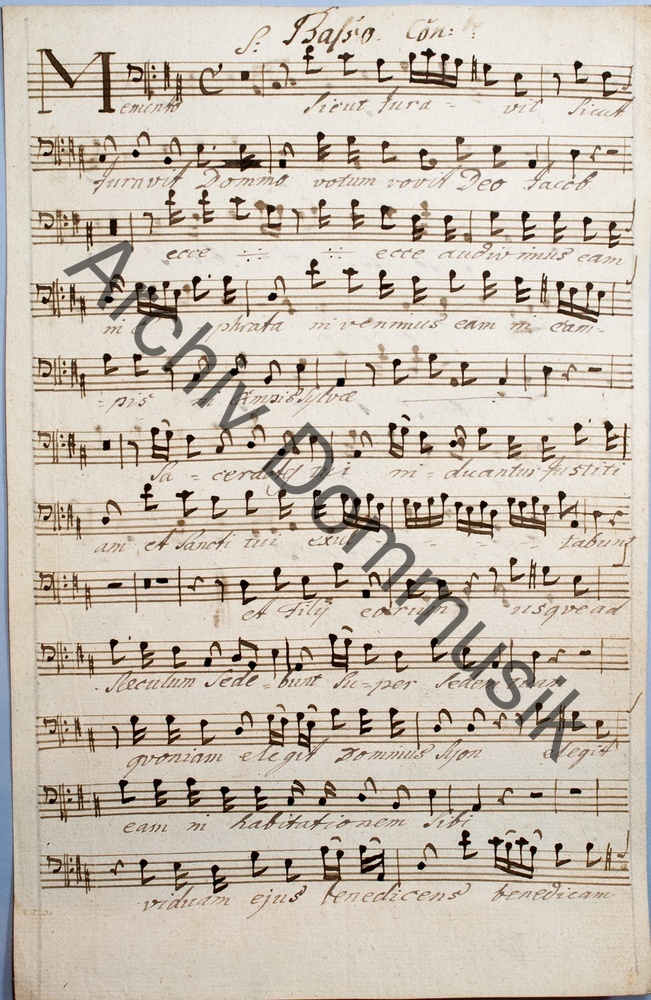 S: Basso. Con:
Memento sicut jura - vit sicut
juravit Domino votum vovit Deo Jacob
ecce ·/· ·/· ecce audivimus eam
in e phrata invenimus eam in cam-
- pis in Campis Sylvæ
Sa - cerdotes tui in - duantur justiti
am et Sancti tui exul - - - - tabunt
et Filij eorum usque ad
Sæculum Sede - bunt Su - per Sedem tuam
quoniam elegit Dominus Sion elegit
eam in habitationem Sibi
viduam ejus benedicens benedicam
Archiv Dommusik